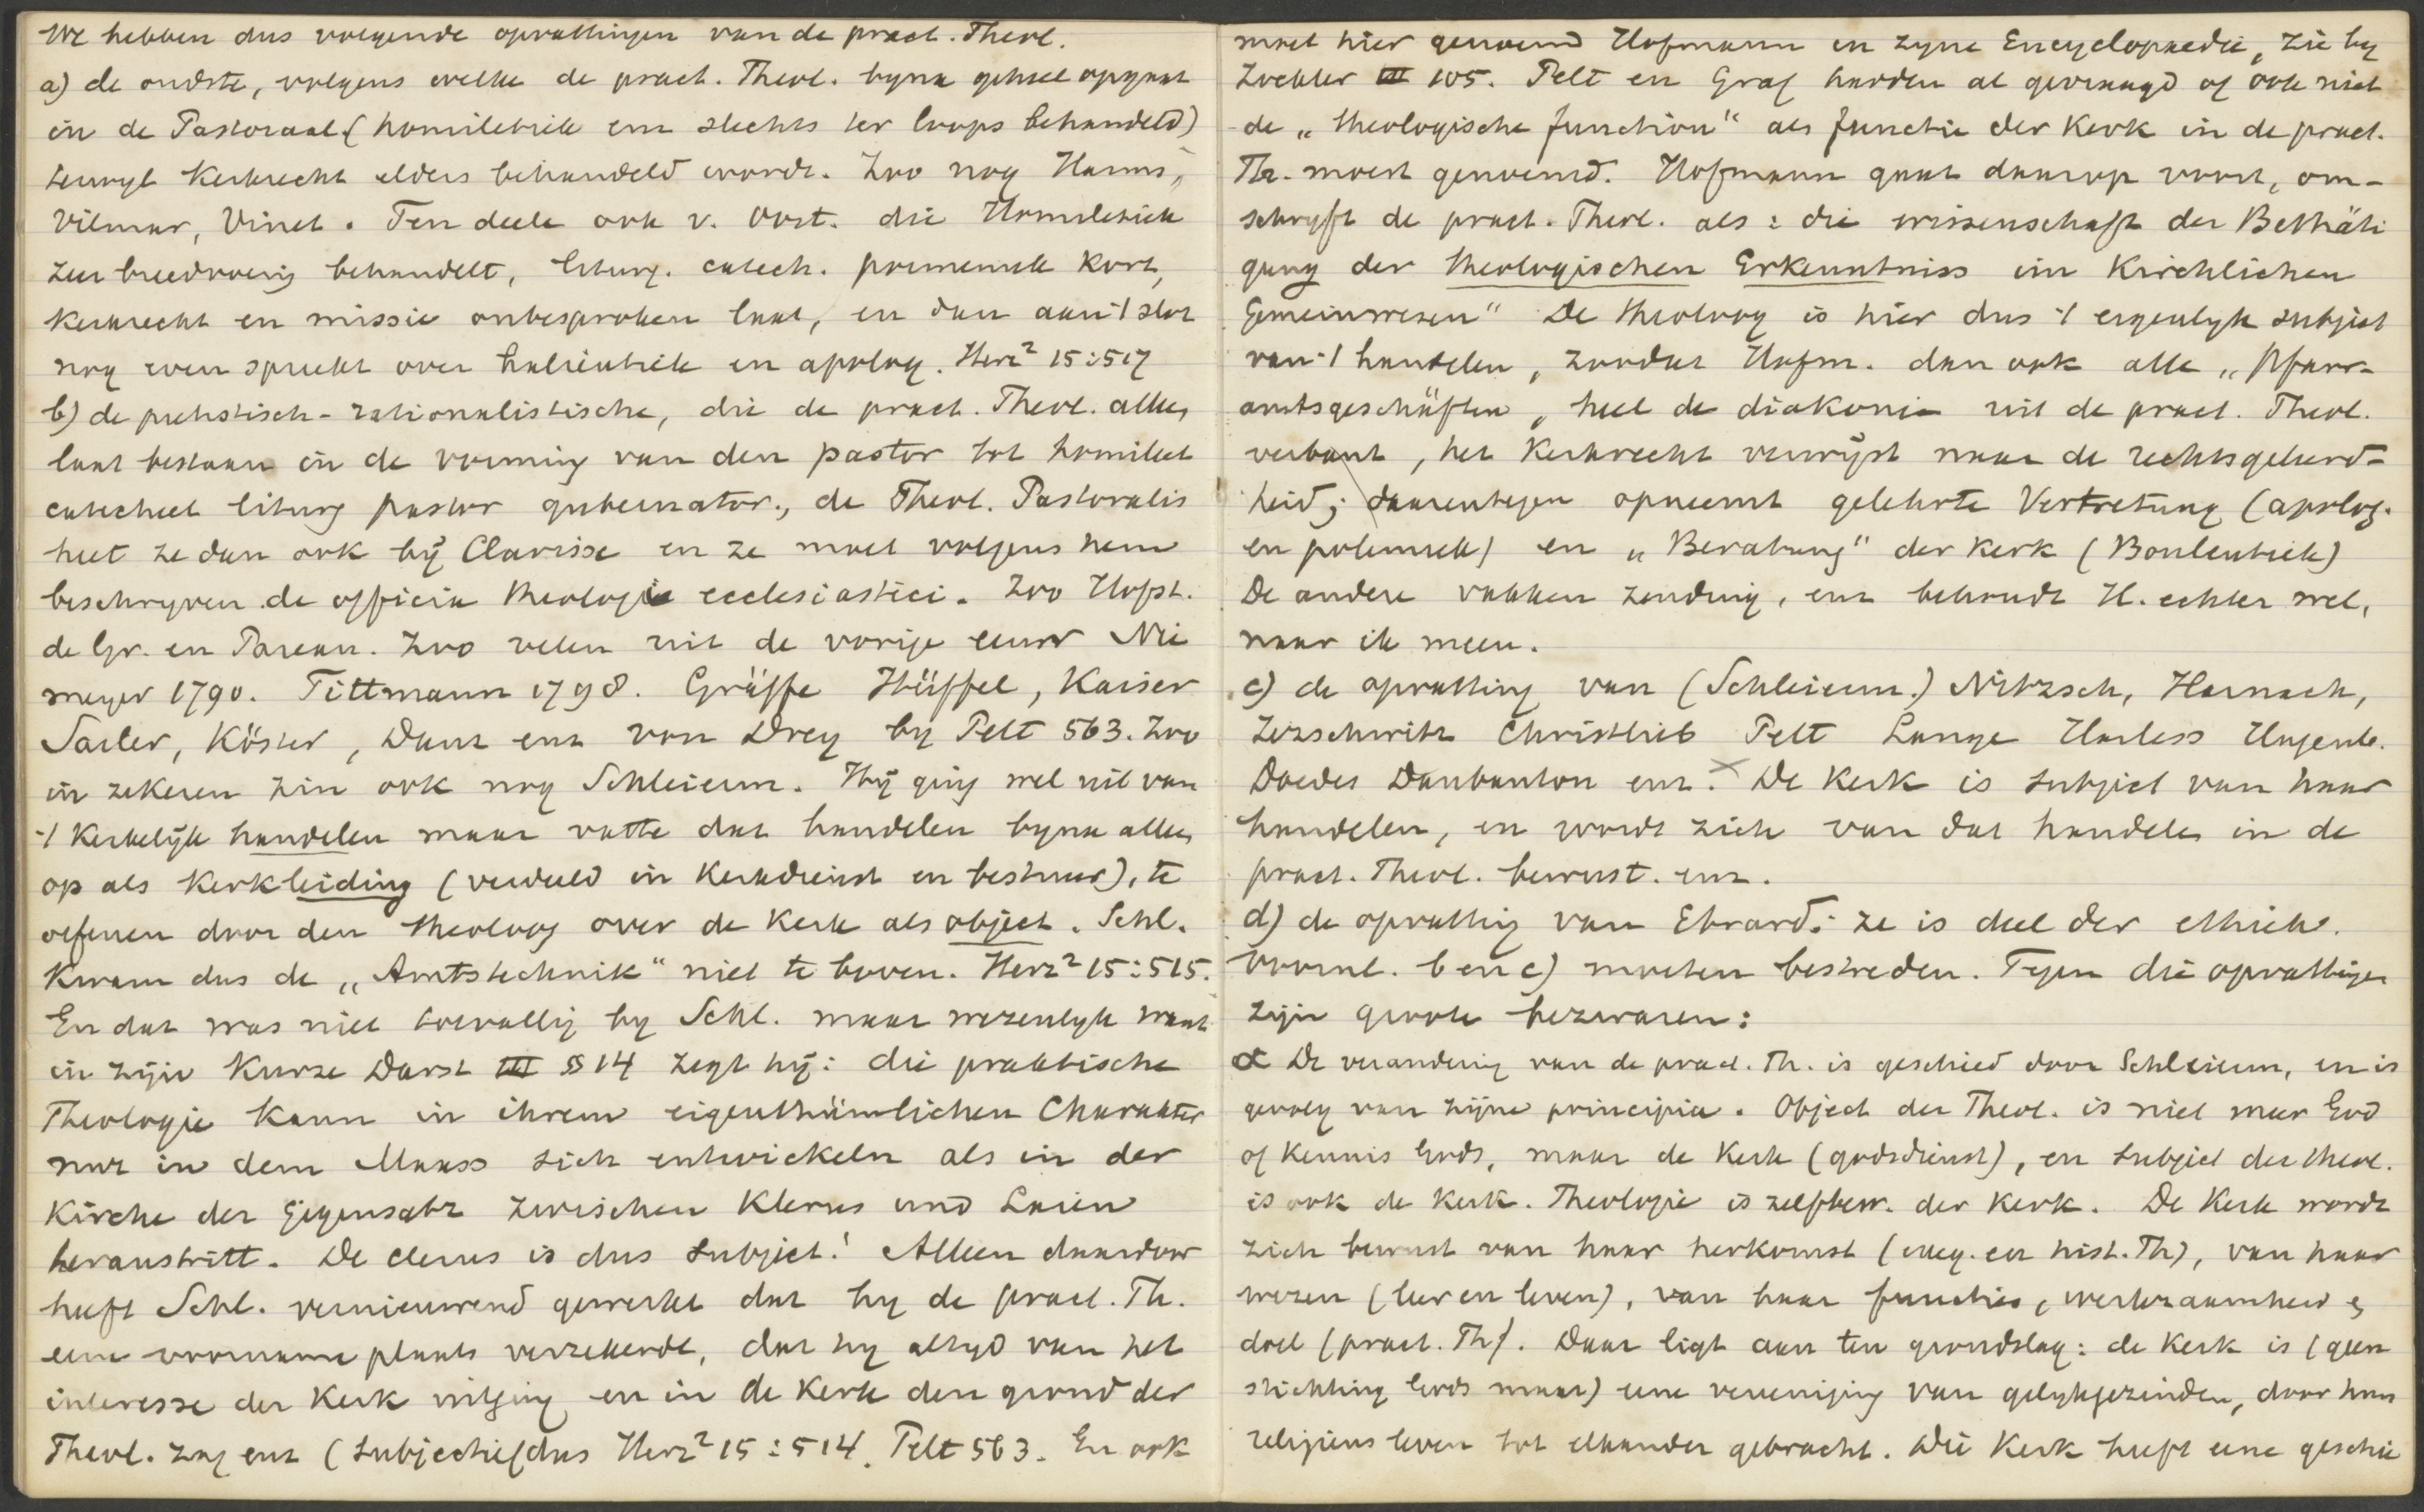 We hebben dus volgende opvattingen van de pract. Theol.
a) de oudste, volgens welke de pract. Theol. byna geheel opgaat
in de Pastoraal (homiletiek enz slechts ter loops behandeld)
terwyl Kerkrecht elders behandeld wordt. Zoo nog Harms,
Vilmar, Vinet. Ten deele ook v. Oost. die Homiletiek
zeer breedvoerig behandelt, liturg. catech. poimeniek kort,
Kerkrecht en missie onbesproken laat, en dan aan 't slot
nog even spreekt over halieutiek en apolog. Herz² 15:517
b) de piëtistisch-rationalistische, die de pract. Theol. alleen
laat bestaan in de vorming van den pastor tot homileet
catecheet liturg pastor gubernator., de Theol. Pastoralis
heet ze dan ook bij Clarisse en ze moet volgens hem
beschryven de officia theologi ecclesiastici. Zoo Hofst.
de Gr. en Pareau. Zoo velen uit de vorige eeuw Nie
meyer 1790. Tittmann 1798. Gräffe Hüffel, Kaiser
Sailer, Köster, Danz enz von Drey by Pelt 563. Zoo
in zekeren zin ook nog Schleierm. Hij ging wel uit van
't Kerkelijk handelen maar vatte dat handelen byna alleen
op als Kerkleiding (verdeeld in Kerkdienst en bestuur), te
oefenen door den theoloog over de Kerk als object. Schl.
kwam dus de „Amtstechnik" niet te boven. Herz² 15:515.
En dat was niet toevallig by Schl. maar wezenlyk want
in zijn Kurze Darst III § 14 zegt hij: die praktische
Theologie kann in ihrem eigenthümlichen Charakter
nur in dem Maass sich entwickeln als in der
Kirche der Gegensatz zwischen Klerus und Laien
heraustritt. De clerus is dus subject! Alleen daardoor
heeft Schl. vernieuwend gewerkt dat hy de pract. Th.
eene voorname plaats verzekerde, dat hy altyd van het
interesse der Kerk uitging en in de Kerk den grond der
Theol. zag enz (subjectief dus Herz² 15:514. Pelt 563. En ook
moet hier genoemd Hofmann in zyne Encyclopaedie, zie by
Zockler III 105. Pelt en Graf hadden al gevraagd of ook niet
de „theologische function" als functie der Kerk in de pract.
Th. moest genoemd. Hofmann gaat daarop voort, om-
schryft de pract. Theol. als: die wissenschaft der Bethäti
gung der theologischen Erkenntniss im Kirchlichen
Gemeinwesen" De theoloog is hier dus 't eigenlyk subject
van 't handelen, zoodat Hofm. dan ook alle „Pfarr-
amtsgeschäften, heel de diakonie uit de pract. Theol.
verbant, het Kerkrecht verwijst naar de rechtsgeleerd-
heid; daarentegen opneemt gelehrte Vertretung (apolog.
en polemiek) en „Beratung" der Kerk (Bouleutiek)
De andere vakken zending, enz behoudt H. echter wel,
naar ik meen.
c) de opvatting van (Schleierm.) Nitzsch, Harnack,
Zezschwitz Christlieb Pelt Lange Harless Hagenb.
Doedes Daubanton enz. De Kerk is subject van haar
handelen, en wordt zich van dat handelen in de
pract. Theol. bewust. enz.
d) de opvatting van Ebrard: ze is deel der ethiek.
Voornl. b en c) moeten bestreden. Tegen die opvattingen
zijn groote bezwaren:
α De verandering van de pract. Th. is geschied door Schleierm, en is
gevolg van zijne principia. Object der Theol. is niet meer God
of Kennis Gods, maar de Kerk (godsdienst), en subject der theol.
is ook de Kerk. Theologie is zelfbew. der Kerk. De Kerk wordt
zich bewust van haar herkomst (exeg. en hist. Th), van haar
wezen (leer en leven), van haar functies, werkzaamheid en
doel (pract. Th). Daar ligt aan ten grondslag: de Kerk is (geen
stichting Gods maar) eene vereeniging van gelykgezinden, door hun
religieus leven tot elkander gebracht. Die Kerk heeft eene geschie